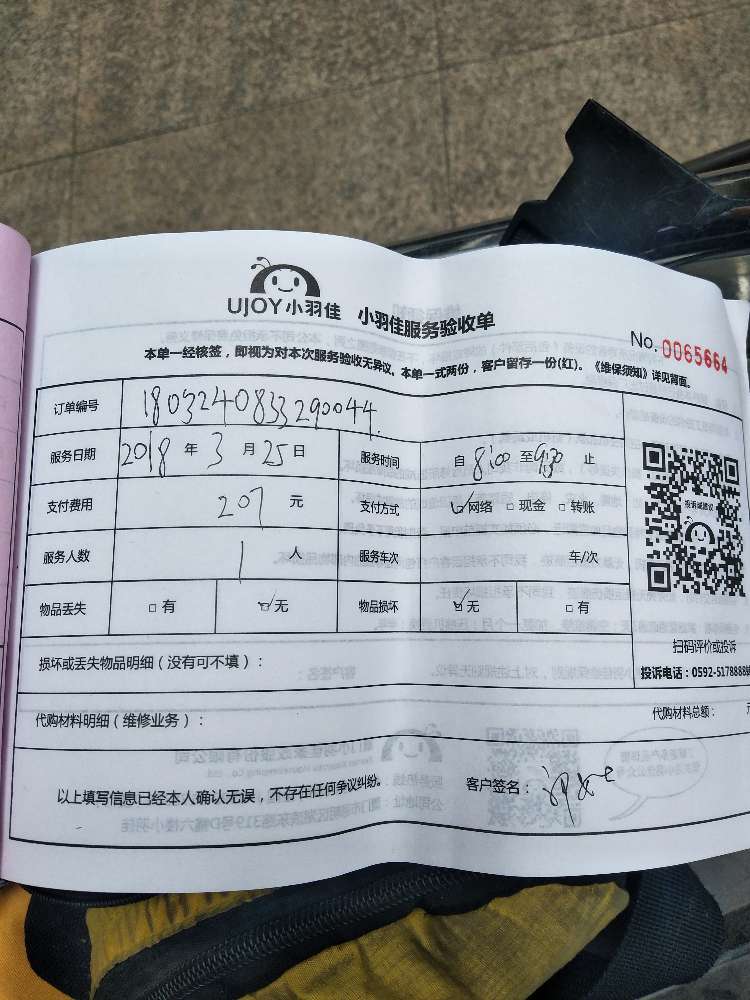 UJOY小羽佳 小羽佳服务验收单
No. 0065664
本单一经核签，即视为对本次服务验收无异议。本单一式两份，客户留存一份(红)。《维保须知》详见背面。
订单编号 1803240833290044
服务日期 2018 年 3 月 25 日 服务时间 自 8:00 至 9:30 止
支付费用 207 元 支付方式 ☑网络 □现金 □转账
服务人数 1 人 服务车次 车/次
物品丢失 □有 ☑无 物品损坏 ☑无 □有
扫码评价或投诉
投诉电话：0592-5178888
损坏或丢失物品明细（没有可不填）：
代购材料明细（维修业务）： 代购材料总额：
以上填写信息已经本人确认无误，不存在任何争议纠纷。 客户签名：